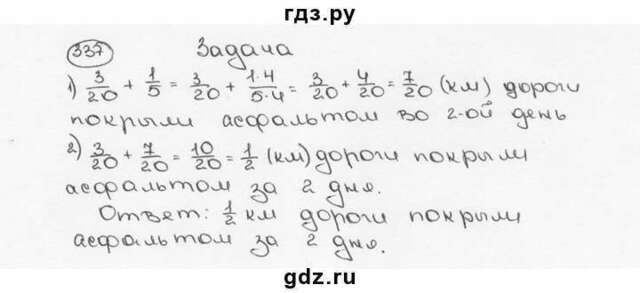 гдз.ру
337 Задача
1) 3/20 + 1/5 = 3/20 + 1·4/5·4 = 3/20 + 4/20 = 7/20 (км) дороги
покрыли асфальтом во 2-ой день
2) 3/20 + 7/20 = 10/20 = 1/2 (км) дороги покрыли
асфальтом за 2 дня.
Ответ: 1/2 км дороги покрыли
асфальтом за 2 дня.
gdz.ru